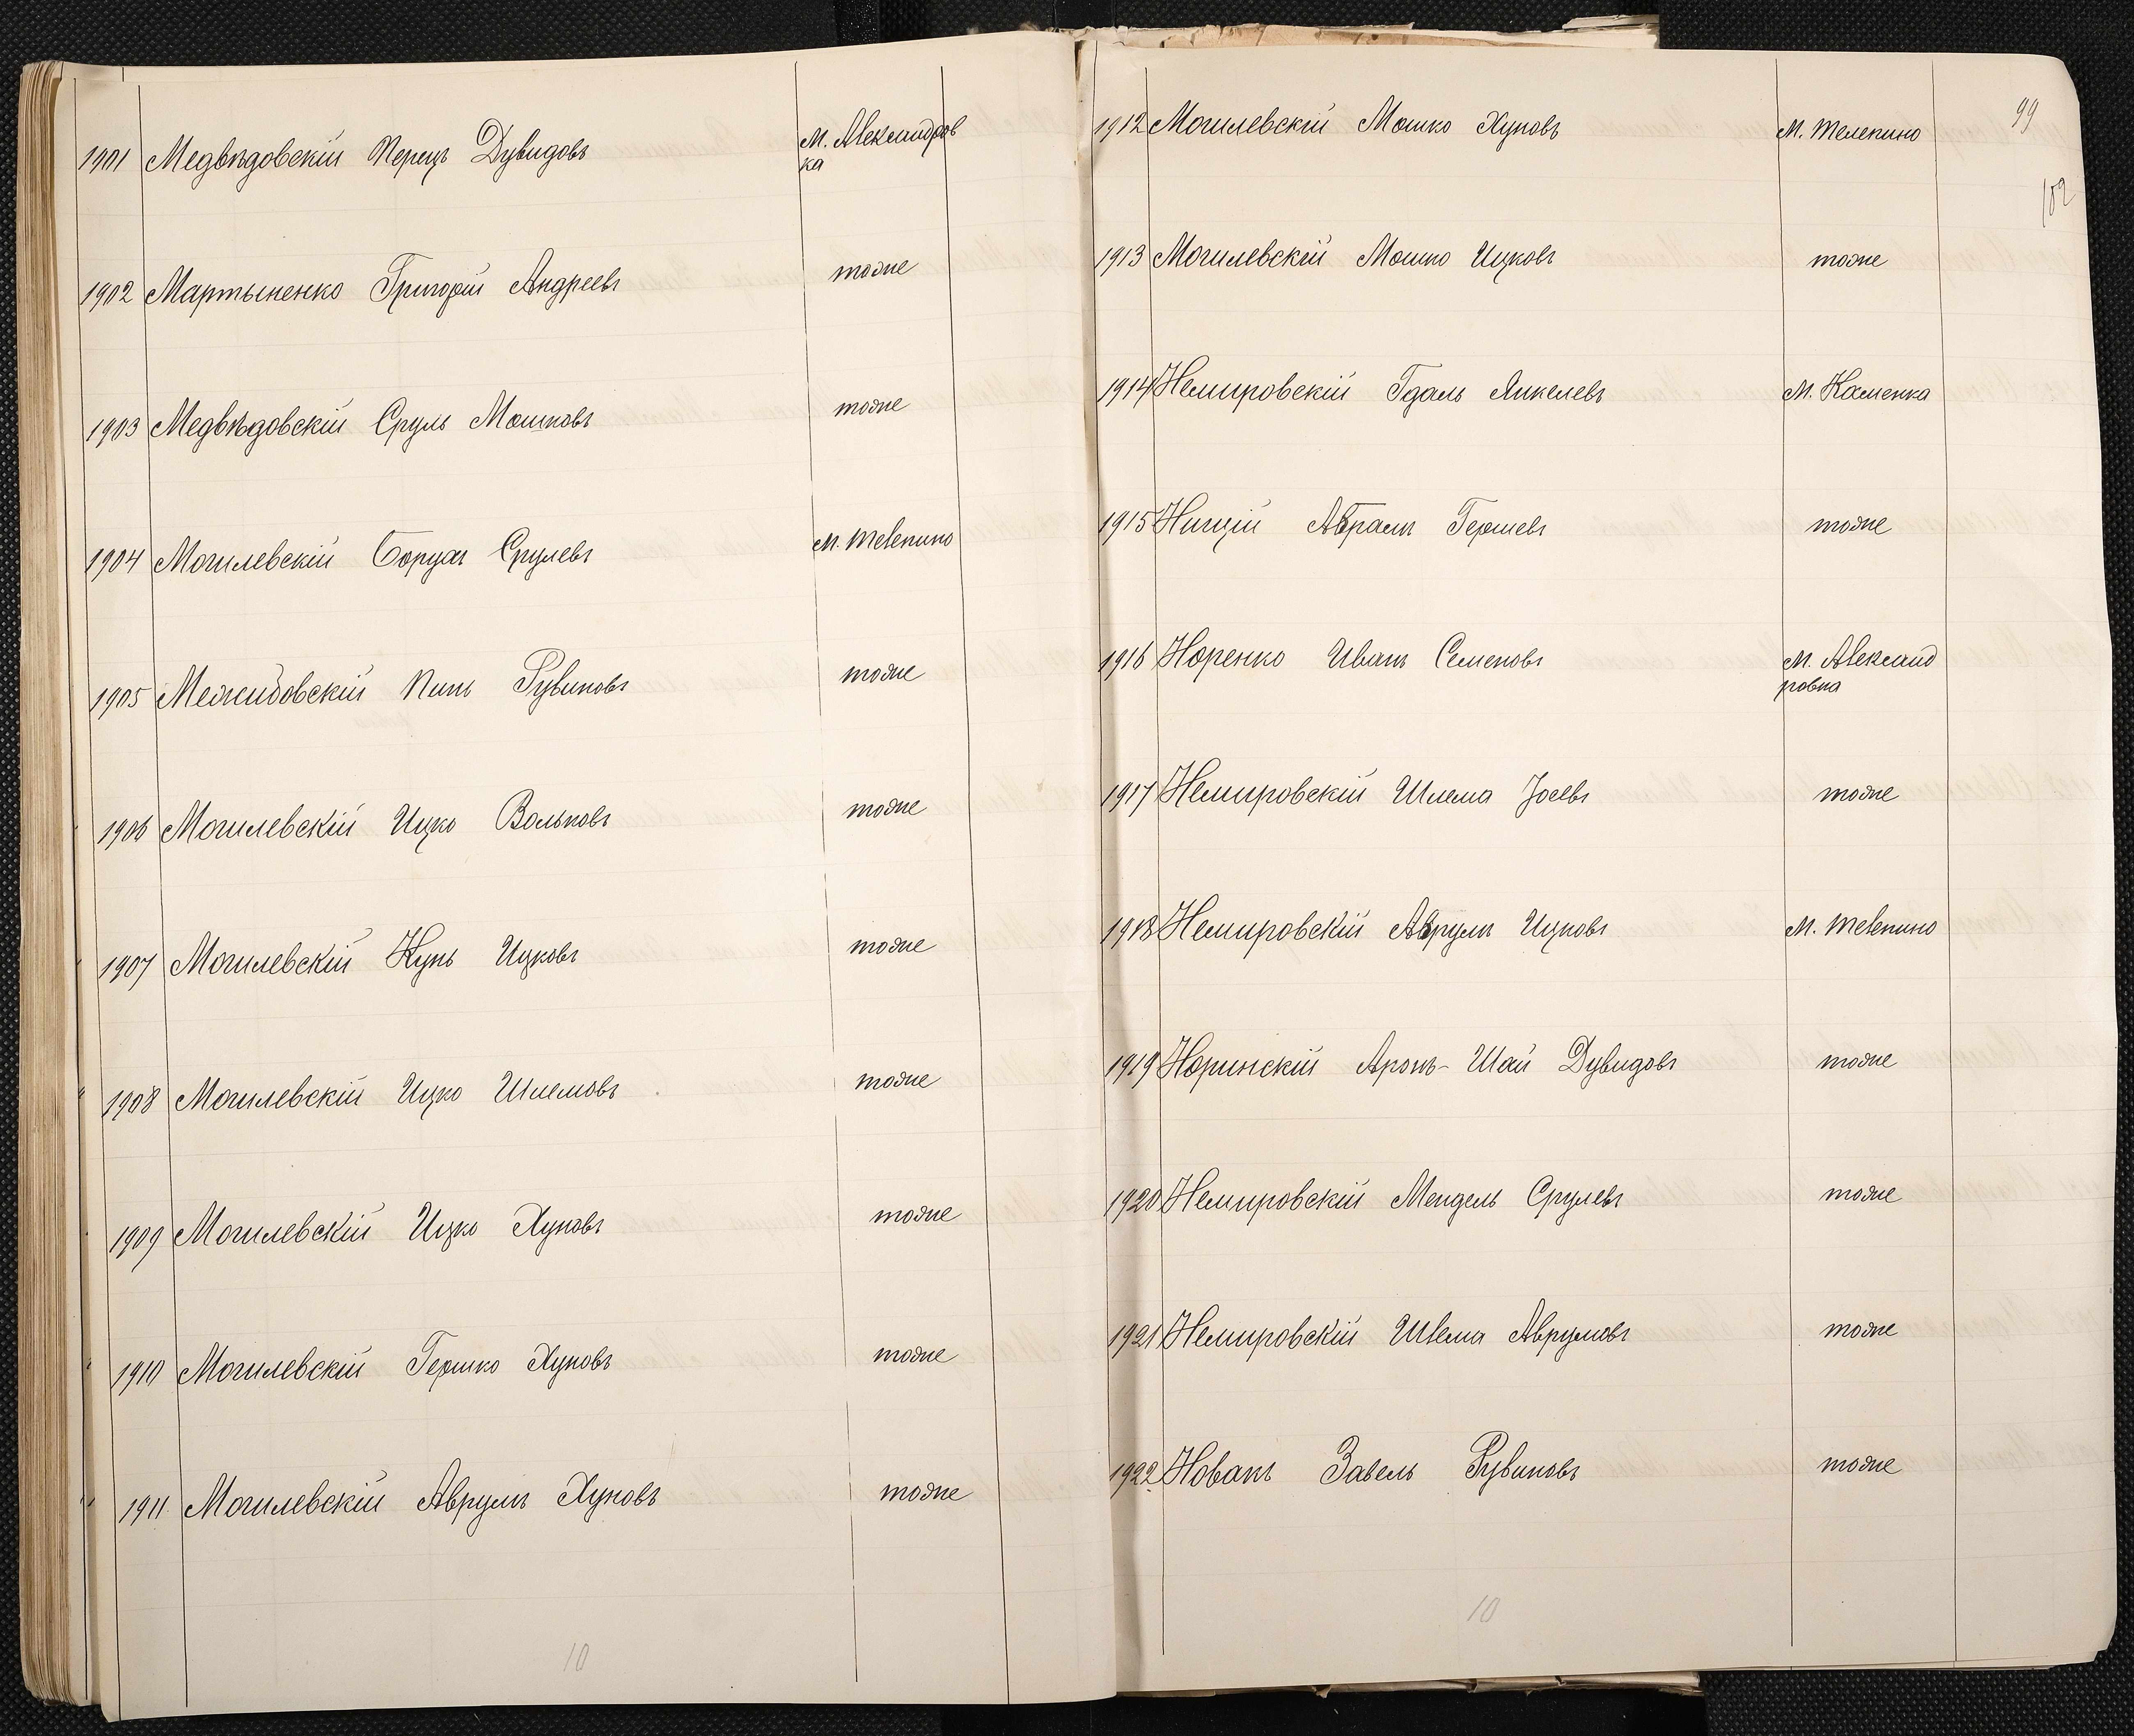 1901 Медвѣдовскій Перецъ Дувидовъ М. Александров
ка
1902 Мартыненко Григорій Андреевъ тоже
1903 Медвѣдовскій Сруль Мошковъ тоже
1904 Могилевскій Борухъ Срулевъ М. Телепино
1905 Межибовскій Пинь Рувиновъ тоже
1906 Могилевскій Ицко Вольковъ тоже
1907 Могилевскій Кунь Ицковъ тоже
1908 Могилевскій Ицко Шлемовъ тоже
1909 Могилевскій Ицко Хуновъ тоже
1910 Могилевскій Гершко Хуновъ тоже
1911 Могилевскій Аврумъ Хуновъ тоже
10
99
102
1912 Могилевскій Мошко Хуновъ М. Телепино
1913 Могилевскій Мошко Ицковъ тоже
1914 Немировскій Гдаль Янкелевъ М. Каменка
1915 Нищій Абрамъ Гершевъ тоже
1916 Норенко Иванъ Семеновъ М. Александ
ровка
1917 Немировскій Шлема Іосевъ тоже
1918 Немировскій Аврумъ Ицковъ М. Телепино
1919 Норинскій Аронъ-Шай Дувидовъ тоже
1920 Немировскій Мендель Срулевъ тоже
1921 Немировскій Шлема Аврумовъ тоже
1922 Новакъ Завель Рувиновъ тоже
10